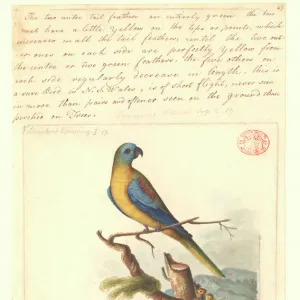 The two outer tail feathers are entirely green the two
next have a little yellow on the tips or points, which
increases in all the tail feathers, until the two out-
er ones on each side are perfectly yellow from
the center or two green feathers. the five others on
each side regularly decrease in length. this is
a rare Bird in N.S. Wales, is of short flight, never seen
in more than pairs and oftener seen on the ground than
perched on Trees.